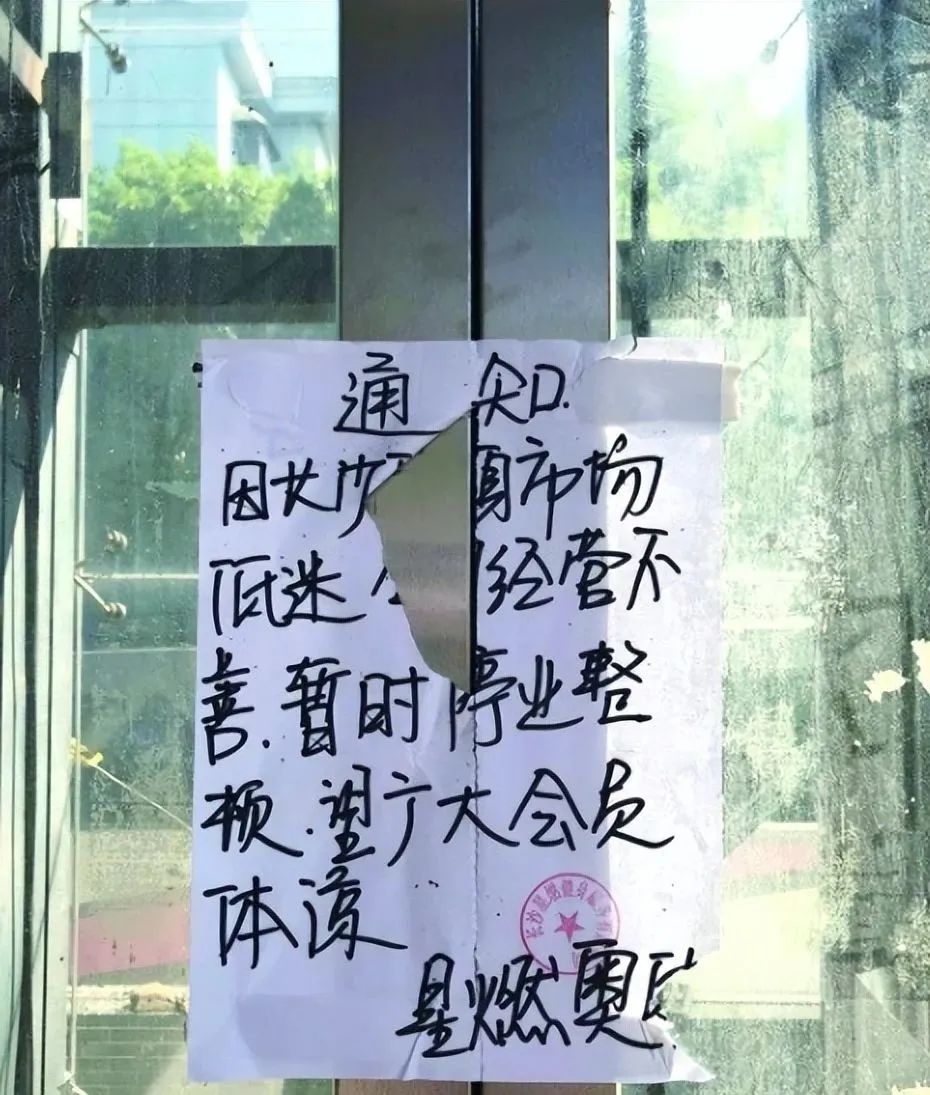 通知.
因长沙市场
低迷经营不
善.暂时停业整
顿.望广大会员
体谅
长沙星燃健身
星燃奥